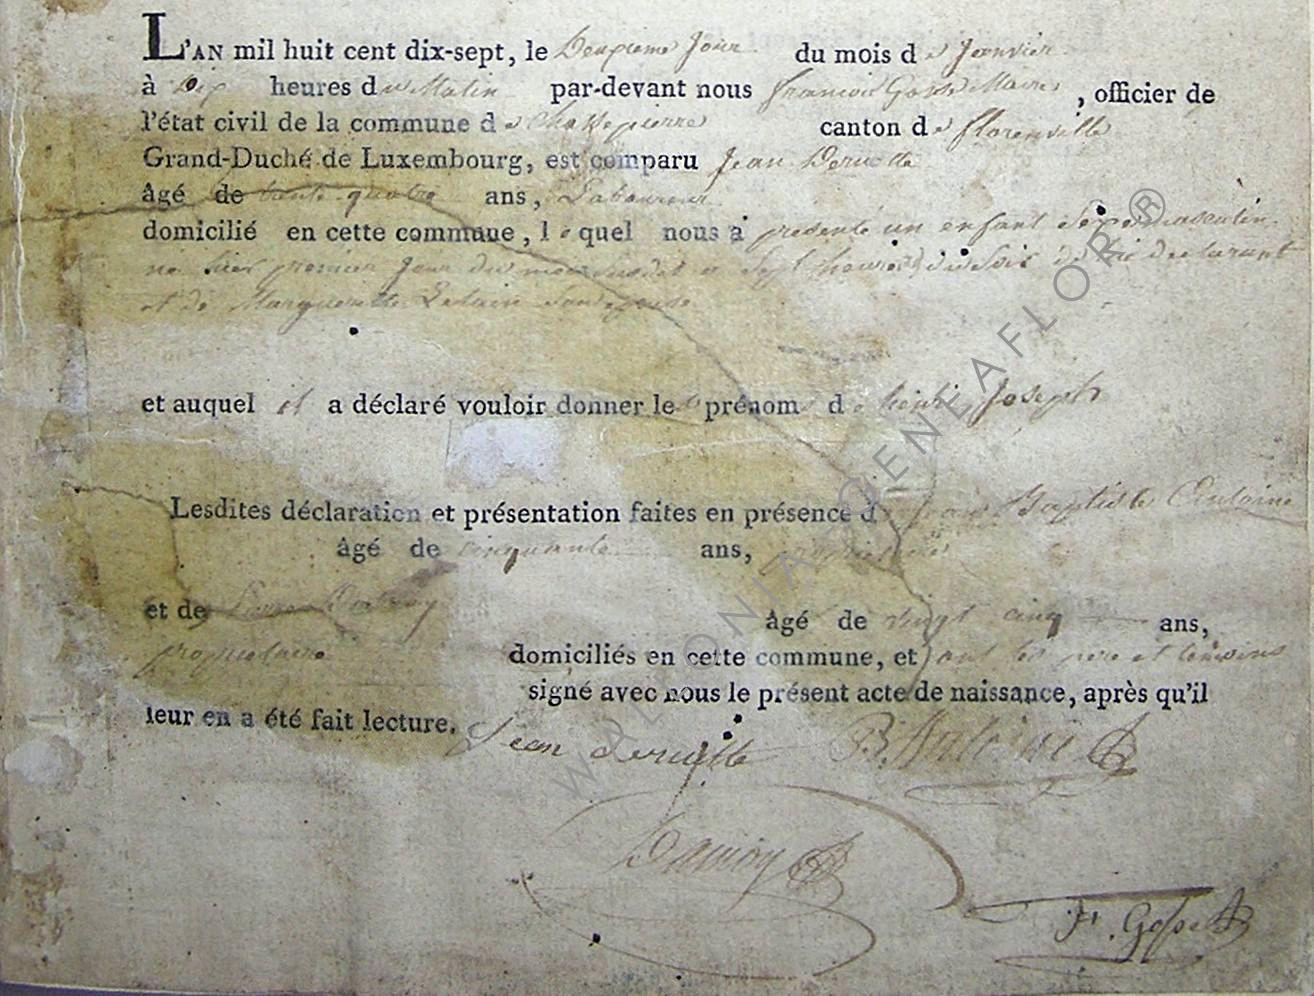 L'AN mil huit cent dix-sept, le Deuxieme Jour du mois de Janvier
à Dix heures du Matin par-devant nous francois Gosse Maire, officier de
l'état civil de la commune de Chassepierre canton de florenville
Grand-Duché de Luxembourg, est comparu Jean Deruette
âgé de trente quatre ans, Laboureur
domicilié en cette commune, lequel nous a presenté un enfant Sexe masculin
né hier premier Jour du mois susdit a Sept heures du Soir de lui declarant
et de Marguerite Son epouse
et auquel il a déclaré vouloir donner les prénoms de henri Joseph
Lesdites déclaration et présentation faites en présence de jean Baptiste Antoine
âgé de cinquante ans, proprietaire
et de âgé de vingt cinq ans,
proprietaire domiciliés en cette commune, et ont les pere et temoins
signé avec nous le présent acte de naissance, après qu'il
leur en a été fait lecture.
Jean deruette B. Antoine
F. Gosse
WALLONIA GENEAFLOR ®